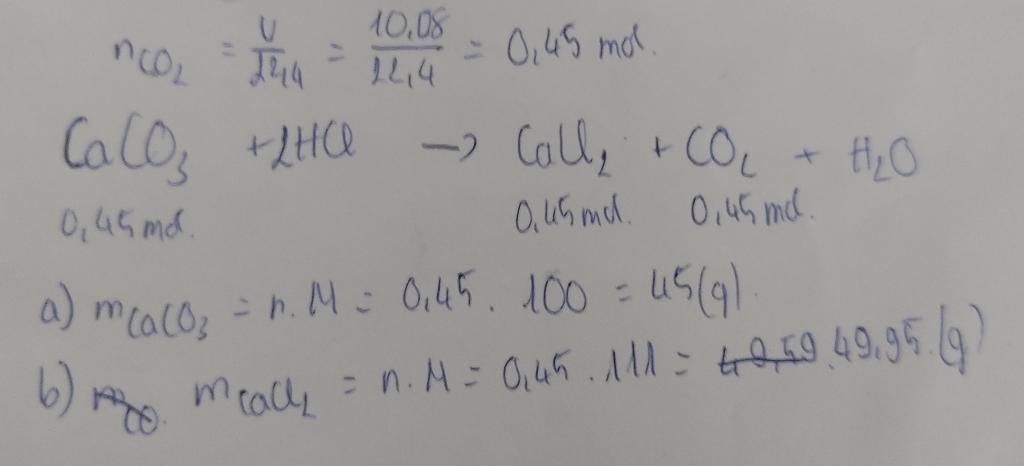 nCO₂ = V/22,4 = 10,08/22,4 = 0,45 mol.
CaCO₃ + 2HCl → CaCl₂ + CO₂ + H₂O
0,45 mol. 0,45 mol. 0,45 mol.
a) mCaCO₃ = n.M = 0,45. 100 = 45(g).
b) mCO. mCaCl₂ = n.M = 0,45 .111 = 49,59. 49,95.(g)